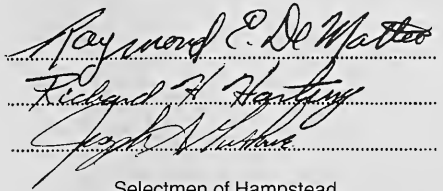 Raymond E. De Matteo
Richard H. Hartung
Joseph A.
Selectmen of Hampstead